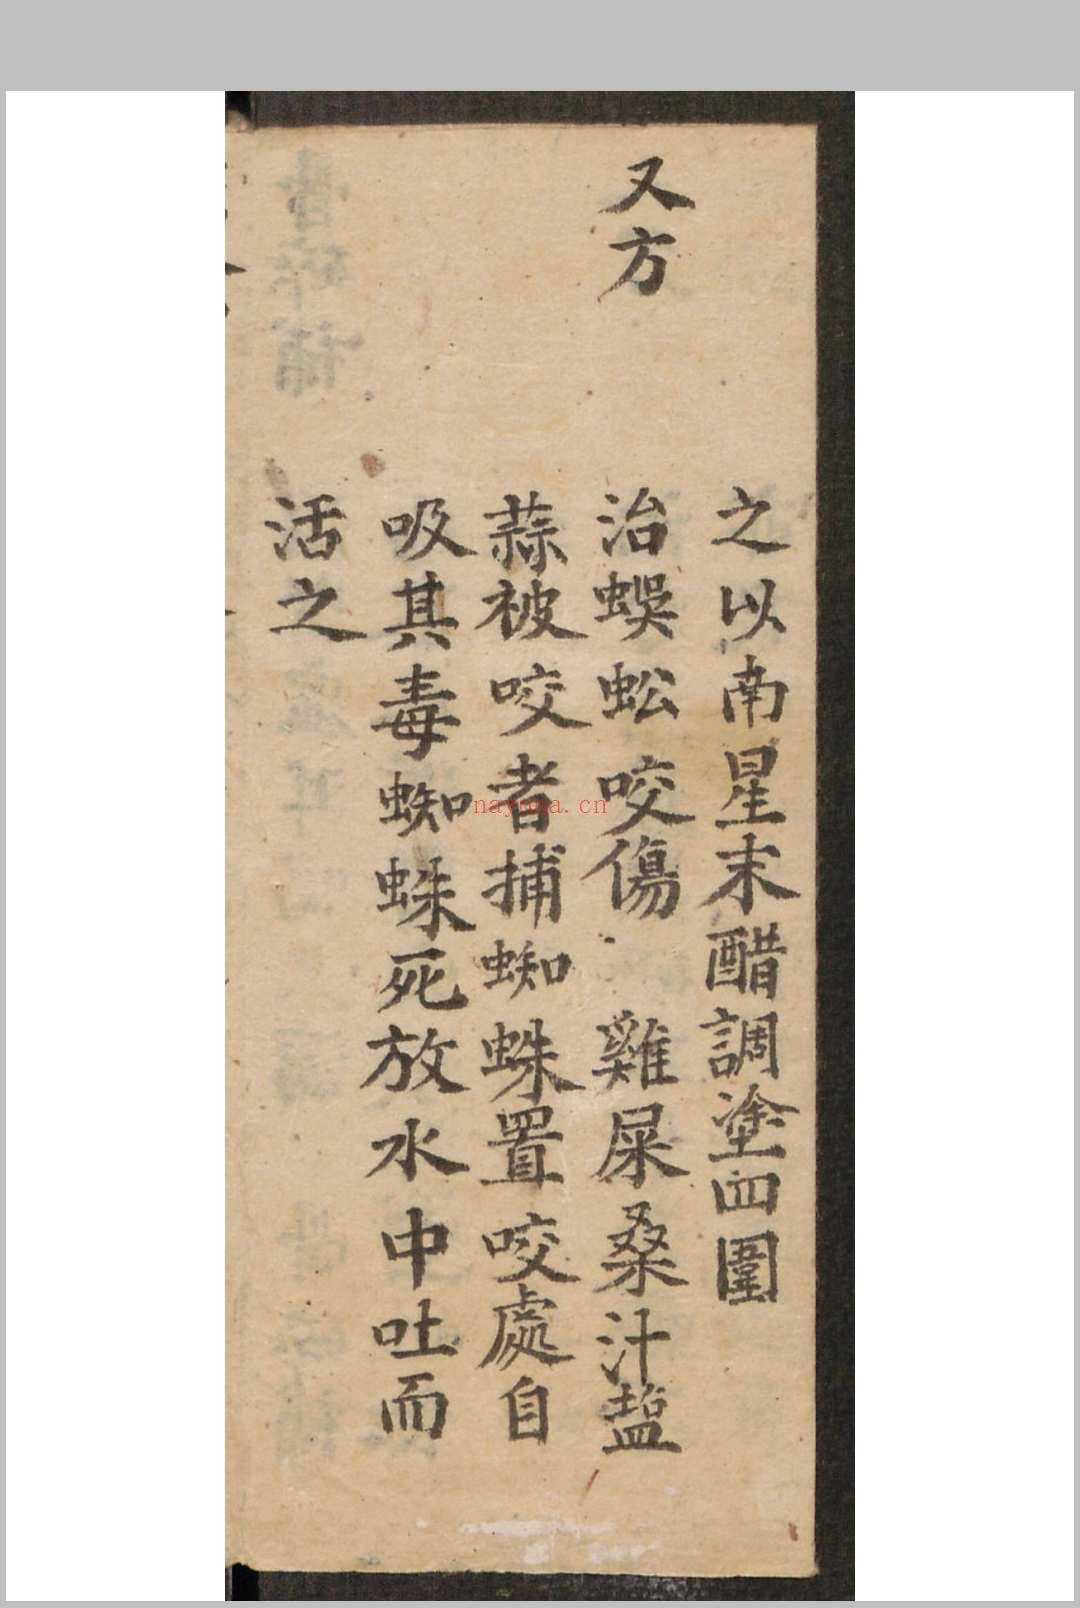 之以南星末醋調塗四圍
又方
治蜈蚣咬傷 雞屎桑汁盐
蒜被咬者捕蜘蛛置咬處自
吸其毒蜘蛛死放水中吐而
活之